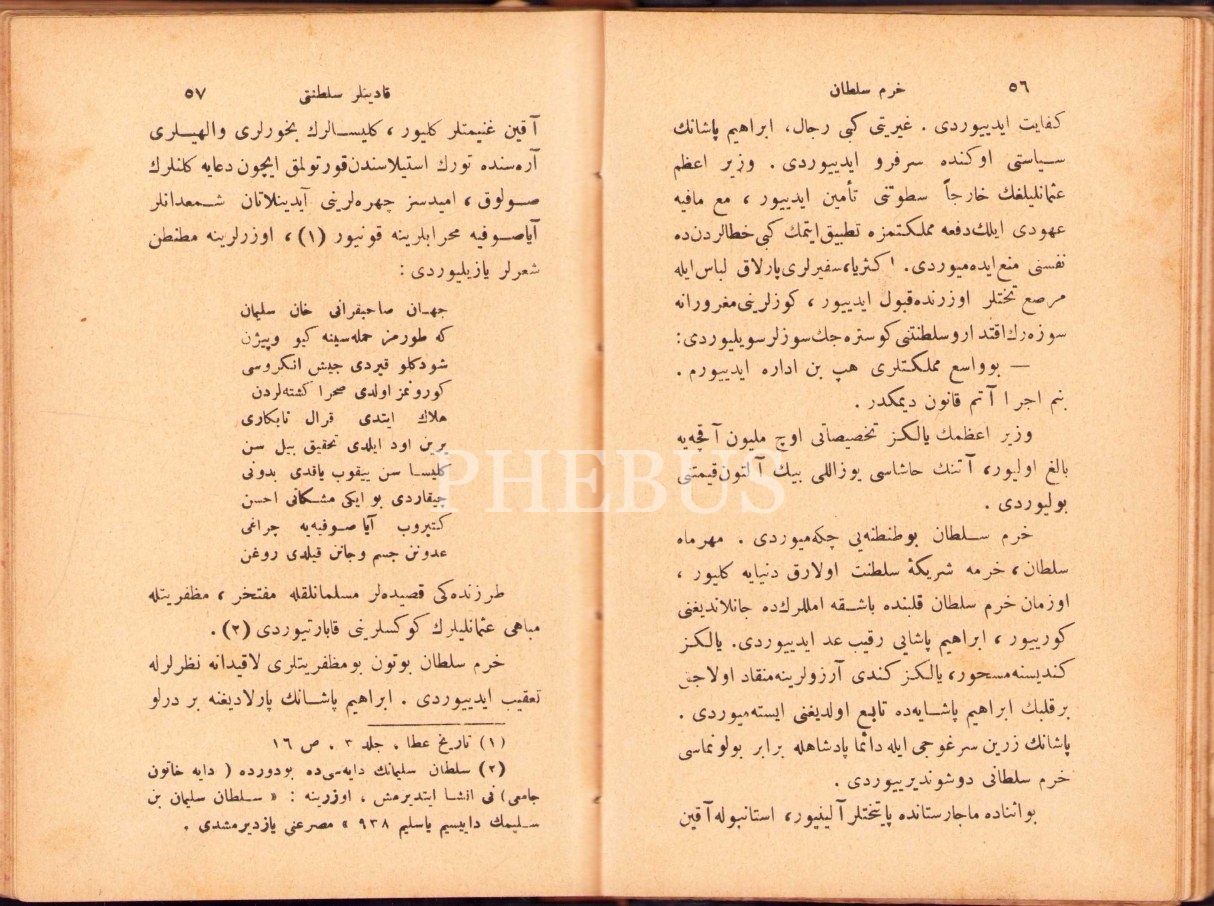 ٥٦
خرم سلطان
كفايت ايدييوردی . غيرتی كبی رجال، ابراهيم پاشانك
سياستی اوكنده سرفرو ايدييوردی . وزير اعظم
عثمانليلغك خارجاً سطوتنی تأمين ايدييور ، مع مافيه
عهودی ايلك دفعه مملكتمزه تطبيق ايتمك كبی خطالردن ده
نفسنی منع ايده ميوردی. اكثريا، سفيرلری پارلاق لباس ايله
مرصع تختلر اوزرنده قبول ايدييور ، كوزلرينی مغرورانه
سوزه رك اقتدار و سلطنتنی كوستره جك سوزلر سويليوردی :
— بو واسع مملكتلری هپ بن اداره ايدييورم .
بنم اجرا آتم قانون ديمكدر .
وزير اعظمك يالكز تخصيصاتی اوچ مليون آقچه يه
بالغ اوليور، آتنك حاشاسی يوز اللی بيك آلتون قيمتنی
بوليوردی .
خرم سلطان بو طنطنه يی چكه ميوردی . مهرماه
سلطان، خرمه شريكهٔ سلطنت اولارق دنيايه كليور ،
اوزمان خرم سلطان قلبنده باشقه امللرك ده جانلانديغنی
كورييور ، ابراهيم پاشايی رقيب عد ايدييوردی. يالكز
كنديسنه مسحور، يالكز كندی آرزولرينه منقاد اولاجق
بر قلبك ابراهيم پاشايه ده تابع اولديغنی ايسته ميوردی .
پاشانك زرين سرغوجی ايله دائما پادشاهله برابر بولونماسی
خرم سلطانی دوشونديرييوردی .
بو اثناده ماجارستانده پايتختلر آلينيور، استانبوله آقين
قادينلر سلطنتی
٥٧
آقين غنيمتلر كليور ، كليسالرك بخورلری والهيلری
آره سنده تورك استيلاسندن قورتولمق ايچون دعايه كلنلرك
صولوق ، اميدسز چهره لرينی آيدينلاتان شمعدانلر
آياصوفيه محرابلرينه قونيور (١) ، اوزرلرينه مطنطن
شعرلر يازيليوردی :
جهان صاحبقرانی خان سليمان
كه طورمز حمله سينه كيو و پيژن
شودكلو قيردی جيش انكروسی
كورونمز اولدی صحرا كشته لردن
هلاك ايتدی قرال نابكاری
يرين اود ايلدی تحقيق بيل سن
كليسا سن ييقوب ياقدی بدونی
چيقاردی بو ايكی مشكاتی احسن
كتيروب آيا صوفيه يه چراغی
عدونن جسم و جانن قيلدی روغن
طرزنده كی قصيده لر مسلمانلقله مفتخر ، مظفريتله
مباهی عثمانليلرك كوكسلرينی قابارتيوردی (٢) .
خرم سلطان بوتون بو مظفريتلری لاقيدانه نظرلرله
تعقيب ايدييوردی . ابراهيم پاشانك پارلاديغنه بر درلو
(١) تاريخ عطا . جلد ٣ . ص ١٦
(٢) سلطان سليمانك دايه سی ده بودورده ( دايه خاتون
جامعی) نی انشا ايتديرمش ، اوزرينه : « سلطان سليمان بن
سليمك داييسيم ياسليم ٩٣٨ » مصرعنی يازديرمشدی .
PHEBUS